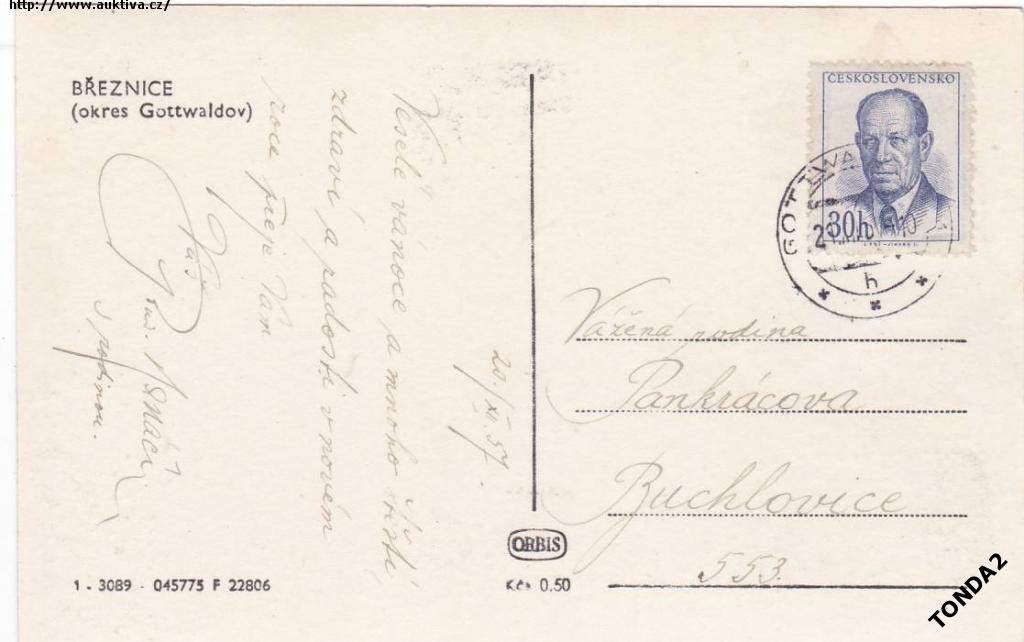 http://www.auktiva.cz/
BŘEZNICE
(okres Gottwaldov)
ČESKOSLOVENSKO
30h
GOTTWA
h
20./XI.57.
Veselé vánoce a mnoho štěstí,
zdraví a radosti v novém
roce přeje Vám
Váš
s rodinou.
Vážená rodina
Pankrácova
Buchlovice
553.
ORBIS
1 - 3089 - 045775 F 22806
Kčs 0.50
TONDA2